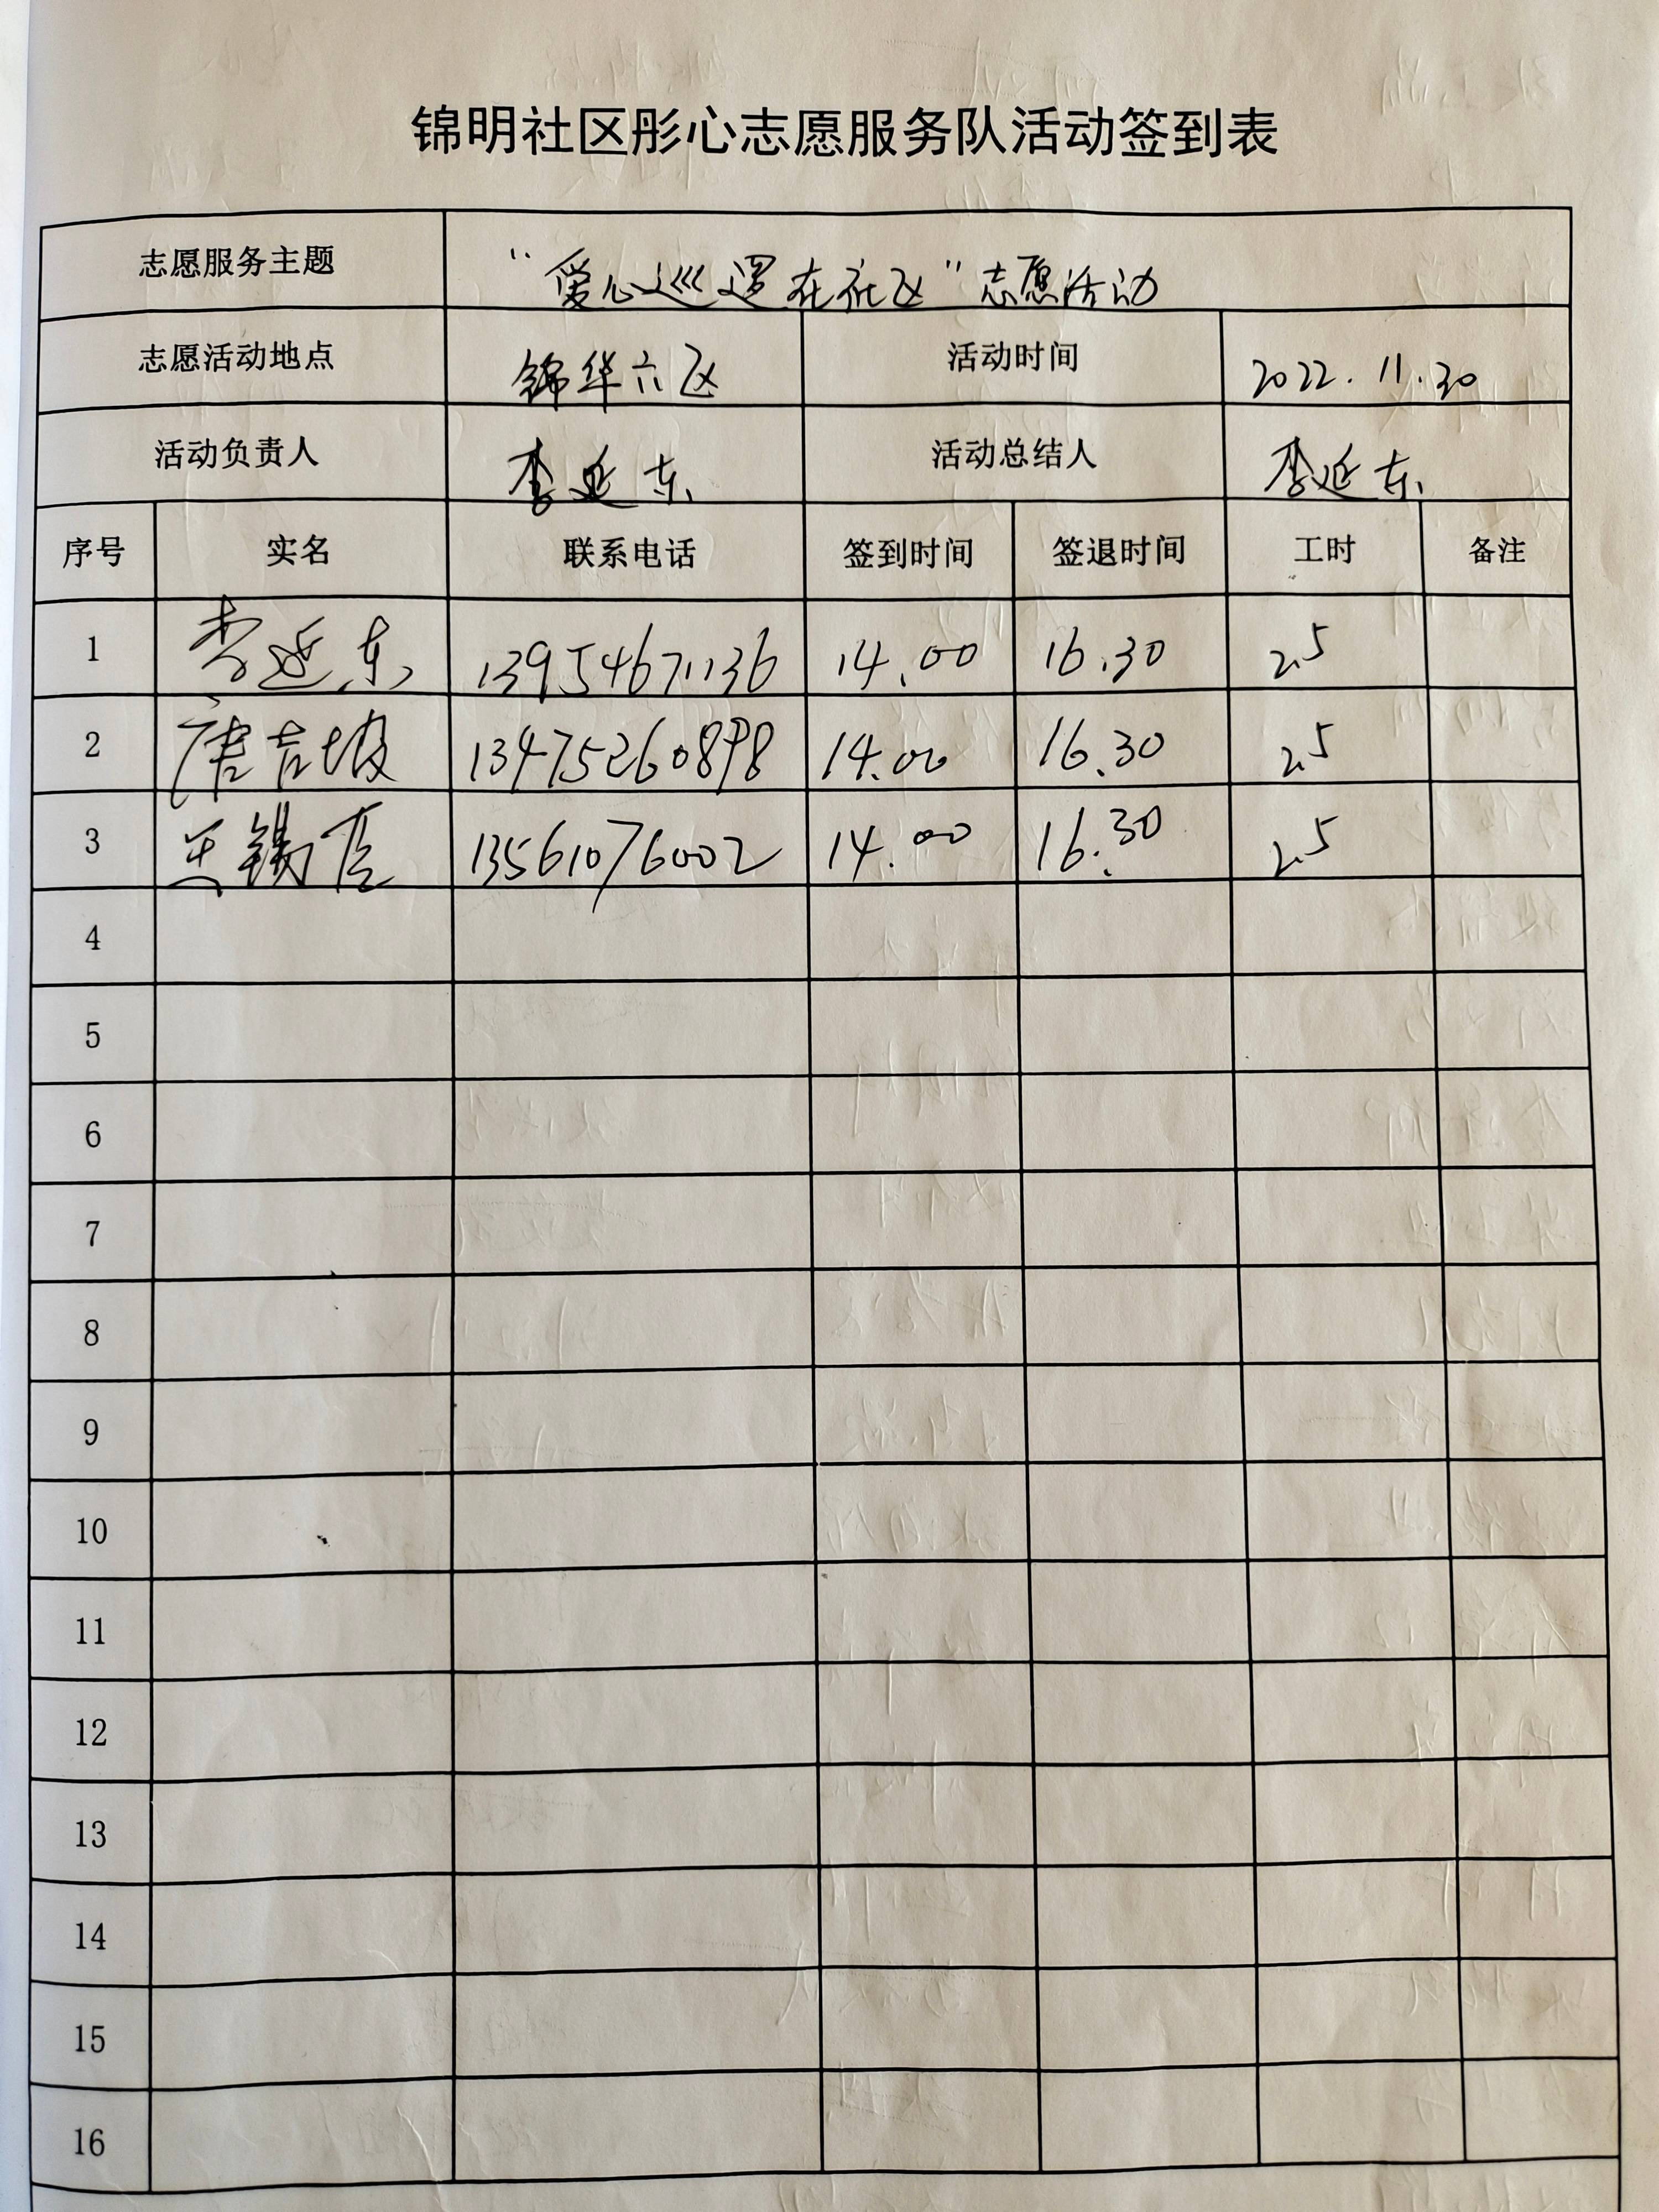 锦明社区彤心志愿服务队活动签到表
志愿服务主题 "爱心巡逻在社区"志愿活动
志愿活动地点 锦华六区 活动时间 2022.11.30
活动负责人 李延东 活动总结人 李延东
序号 实名 联系电话 签到时间 签退时间 工时 备注
1 李延东 13954671136 14.00 16.30 2.5
2 唐吉坡 13475260898 14.00 16.30 2.5
3 王锡 13561076002 14.00 16.30 2.5
4
5
6
7
8
9
10
11
12
13
14
15
16